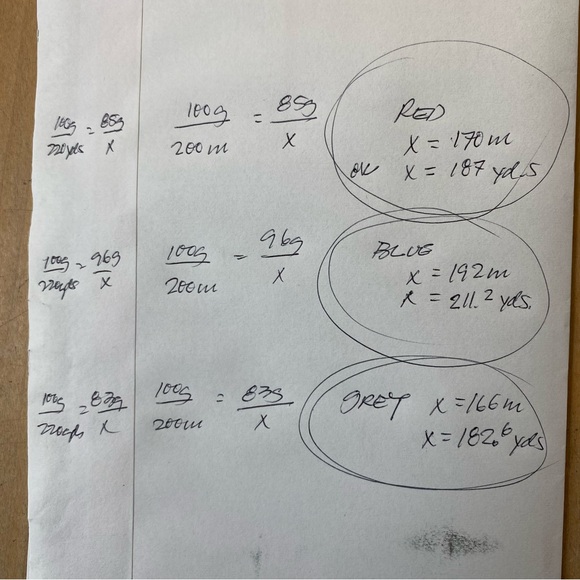 100g/220yds = 85g/x
100g/200m = 85g/x
RED
x = 170m
OR x = 187 yds
100g/220yds = 96g/x
100g/200m = 96g/x
BLUE
x = 192m
x = 211.2 yds.
100g/220yds = 83g/x
100g/200m = 83g/x
GREY x = 166m
x = 182.6 yds